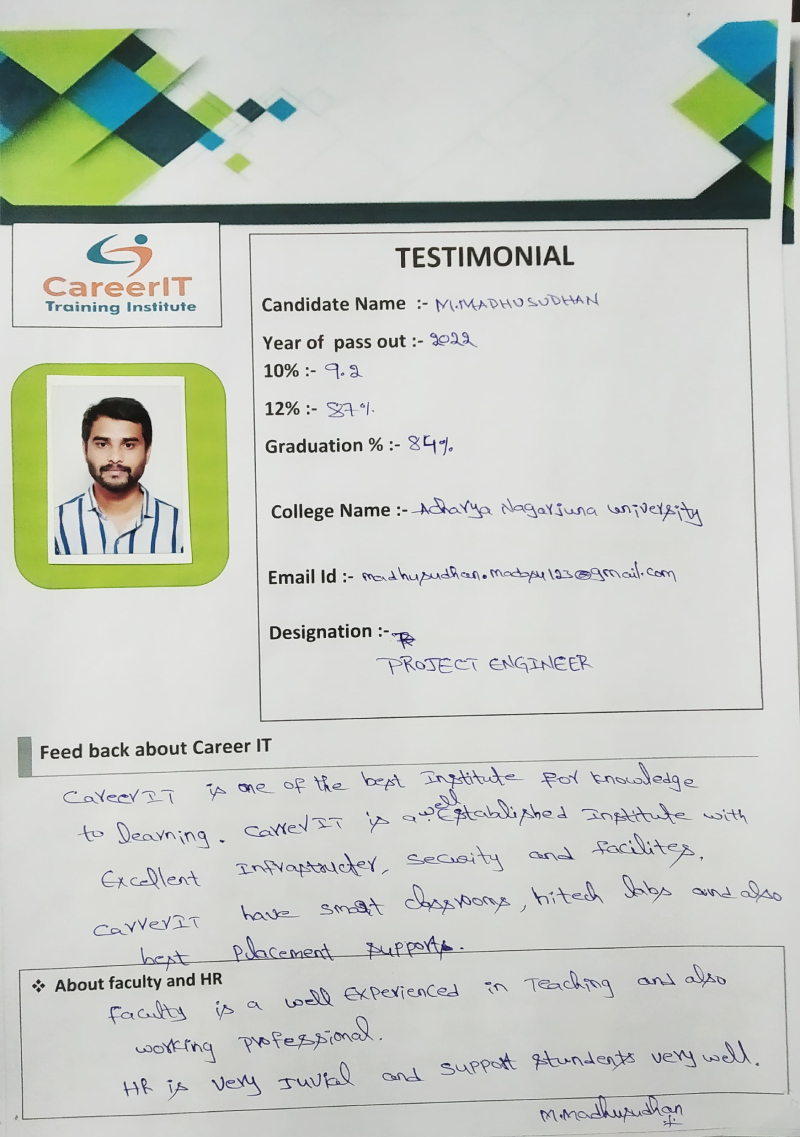 CareerIT
Training Institute
TESTIMONIAL
Candidate Name :- M.MADHUSUDHAN
Year of pass out :- 2022
10% :- 9.2
12% :- 87%
Graduation % :- 84%
College Name :- Acharya Nagarjuna University
Email Id :-
Designation :-
PROJECT ENGINEER
Feed back about Career IT
CareerIT is one of the best Institute for knowledge
to learning. CarrerIT is a well Established Institute with
Excellent Infrastructer, security and facilites,
CarrerIT have smart classrooms, hitech labs and also
best placement supports.
❖ About faculty and HR
faculty is a well Experienced in Teaching and also
working professional.
HR is very Juvial and support stundents very well.
M.Madhusudhan